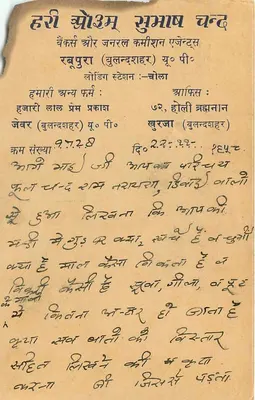 हरी ओ३म् सुभाष चन्द
बैंकर्स और जनरल कमीशन एजेन्ट्स
रबूपुरा (बुलन्दशहर) यू० पी०
लोडिंग स्टेशन : चोला
हमारी अन्य फर्म : आफिस :
हजारी लाल प्रेम प्रकाश ७२, होली ब्रह्मनान
जेवर (बुलन्दशहर) यू० पी० खुरजा (बुलन्दशहर)
क्रम संख्या दि०
आगे भाई जी आपका परिचय
फूल चन्द राम नारायण, डिबाई वालों
से हुआ लिखना कि आपकी
मंडी में गुड़ का क्या, खर्च है व चुंगी
क्या है माल कैसा बिकता है व
बिक्री कैसी है सूखा, गीला, व टूट
के माल
में कितना अन्तर हो जाता है
कृपया सब बातों को विस्तार
सहित लिखने की कृपा
करना जी जिससे पड़ता